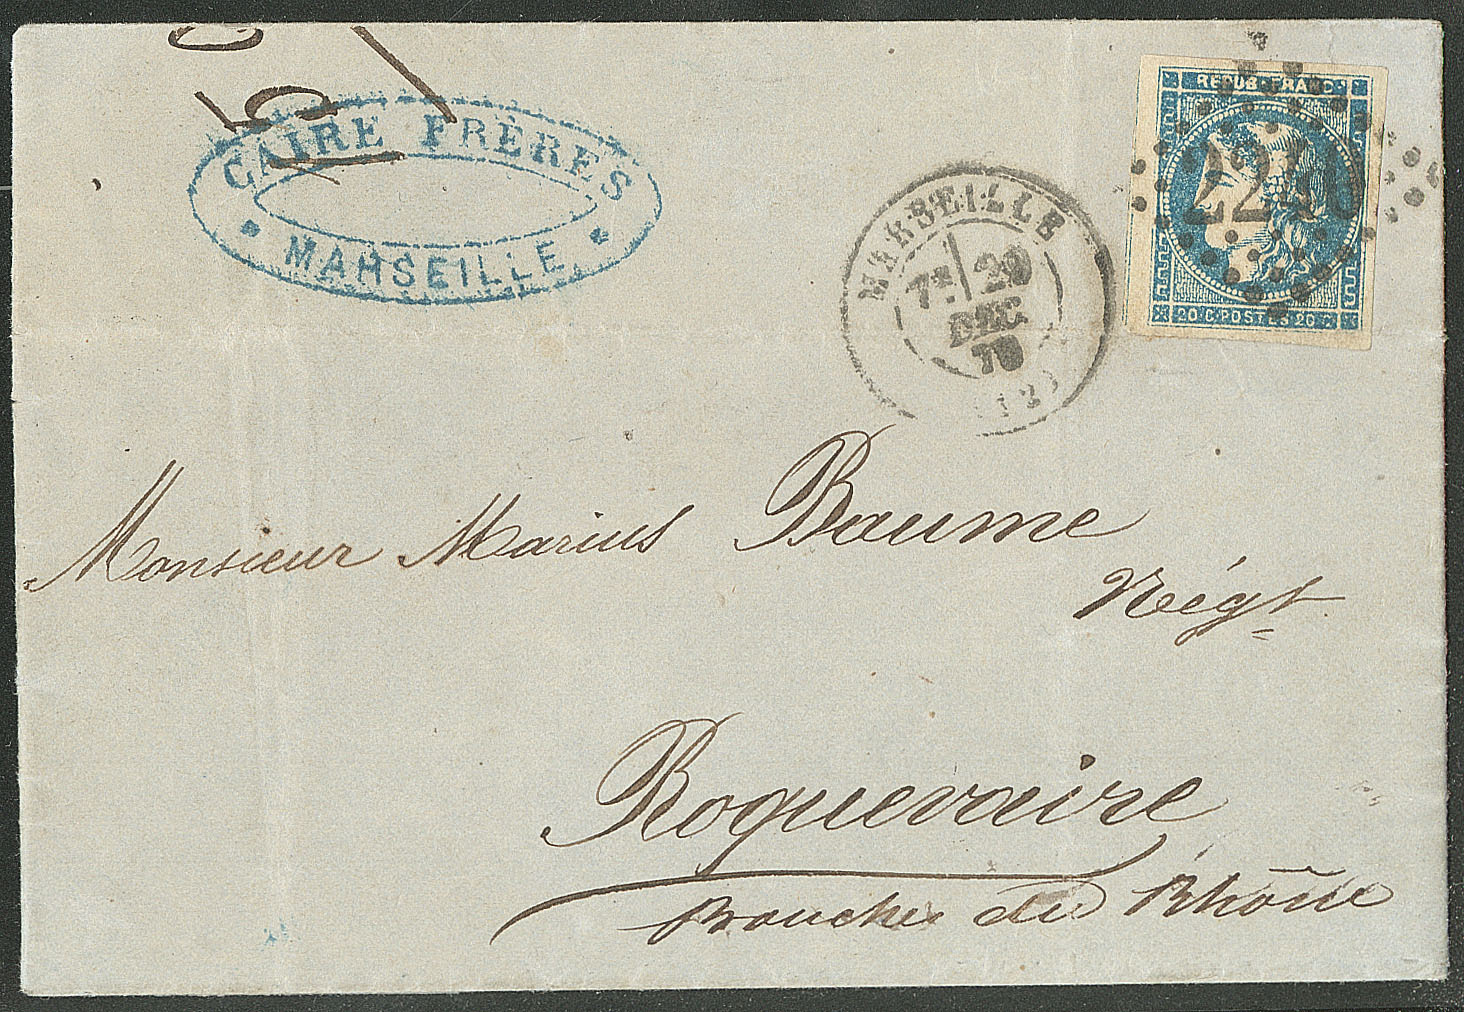 CAIRE FRÈRES
MARSEILLE
MARSEILLE
7E 20
DEC
70
(12)
REPUB. FRANC.
2240
20 C. POSTES 20 C.
Monsieur Marius Baume
Négt
Roquevaire
Bouches du Rhône